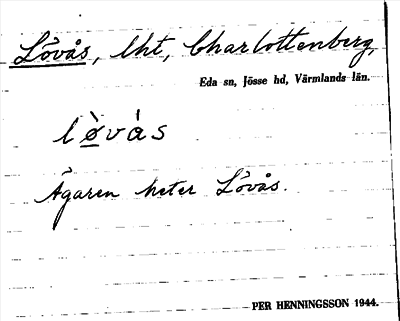 Lövås, lht, Charlottenberg,
Eda sn, Jösse hd, Värmlands län.
lø̀vàs
Ägaren heter Lövås.
PER HENNINGSSON 1944.